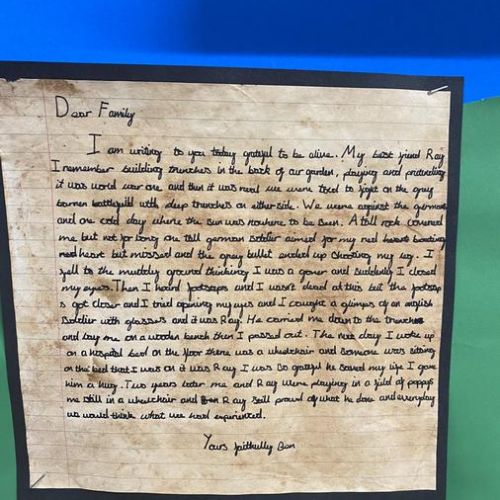 Dear Family
I am writing to you today grateful to be alive. My best friend Ray
I remember building trenches in the back of our garden, playing and pretending
it was world war one and then it was real we were tried to fight on the grey
barren battlefield with deep trenches on either side. We were against the germans
and one cold day where the sun was nowhere to be seen. A tall rock covered
me but not for long one tall german soldier aimed for my red heart beating
red heart but missed and the grey bullet ended up shooting my leg. I
fell to the muddy ground thinking I was a goner and suddenly I closed
my eyes. Then I heard footsteps and I wasn't dead at this but the footstep
s got closer and I tried opening my eyes and I caught a glimps of an english
Soldier with glasses and it was Ray. He carried me down to the trenches
and lay me on a wooden bench then I passed out. The next day I woke up
on a hospital bed on the floor there was a wheelchair and someone was sitting
on the bed that I was on it was Ray. I was so grateful he saved my life I gave
him a hug. Two years later me and Ray were playing in a field of poppys
me still in a wheelchair and Ray still proud of what he done and everyday
us would think what we had experienced.
Yours faithfully Ben